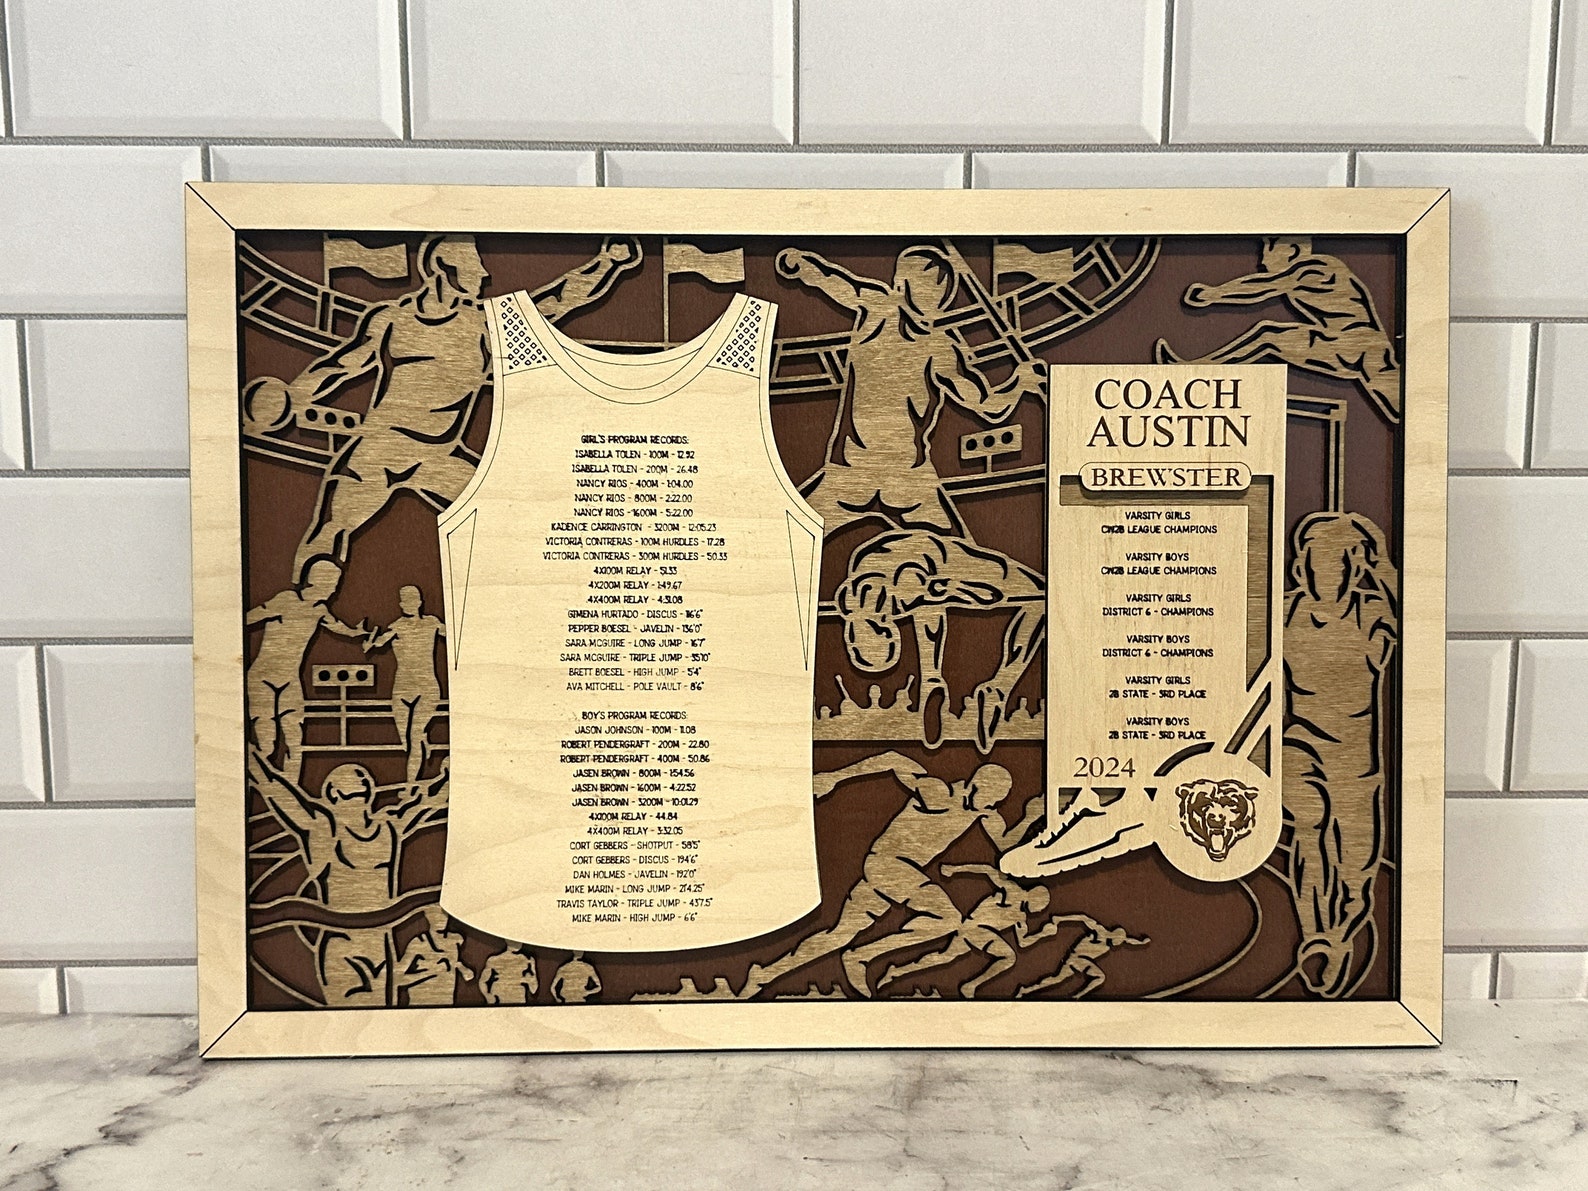 GIRL'S PROGRAM RECORDS:
ISABELLA TOLEN - 100M - 12.92
ISABELLA TOLEN - 200M - 26.48
NANCY RIOS - 400M - 1:04.00
NANCY RIOS - 800M - 2:22.00
NANCY RIOS - 1600M - 5:22.00
KADENCE CARRINGTON - 3200M - 12:05.23
VICTORIA CONTRERAS - 100M HURDLES - 17.28
VICTORIA CONTRERAS - 300M HURDLES - 50.33
4X100M RELAY - 51.33
4X200M RELAY - 1:49.67
4X400M RELAY - 4:31.08
GIMENA HURTADO - DISCUS - 116'6"
PEPPER BOESEL - JAVELIN - 136'0"
SARA MCGUIRE - LONG JUMP - 16'7"
SARA MCGUIRE - TRIPLE JUMP - 35'10"
BRETT BOESEL - HIGH JUMP - 5'4"
AVA MITCHELL - POLE VAULT - 8'6"
BOY'S PROGRAM RECORDS:
JASON JOHNSON - 100M - 11.08
ROBERT PENDERGRAFT - 200M - 22.80
ROBERT PENDERGRAFT - 400M - 50.86
JASEN BROWN - 800M - 1:54.56
JASEN BROWN - 1600M - 4:22.52
JASEN BROWN - 3200M - 10:01.29
4X100M RELAY - 44.84
4X400M RELAY - 3:32.05
CORT GEBBERS - SHOTPUT - 58'5"
CORT GEBBERS - DISCUS - 194'6"
DAN HOLMES - JAVELIN - 192'0"
MIKE MARIN - LONG JUMP - 21'4.25"
TRAVIS TAYLOR - TRIPLE JUMP - 43'7.5"
MIKE MARIN - HIGH JUMP - 6'6"
COACH
AUSTIN
BREWSTER
VARSITY GIRLS
CW2B LEAGUE CHAMPIONS
VARSITY BOYS
CW2B LEAGUE CHAMPIONS
VARSITY GIRLS
DISTRICT 6 - CHAMPIONS
VARSITY BOYS
DISTRICT 6 - CHAMPIONS
VARSITY GIRLS
2B STATE - 3RD PLACE
VARSITY BOYS
2B STATE - 3RD PLACE
2024